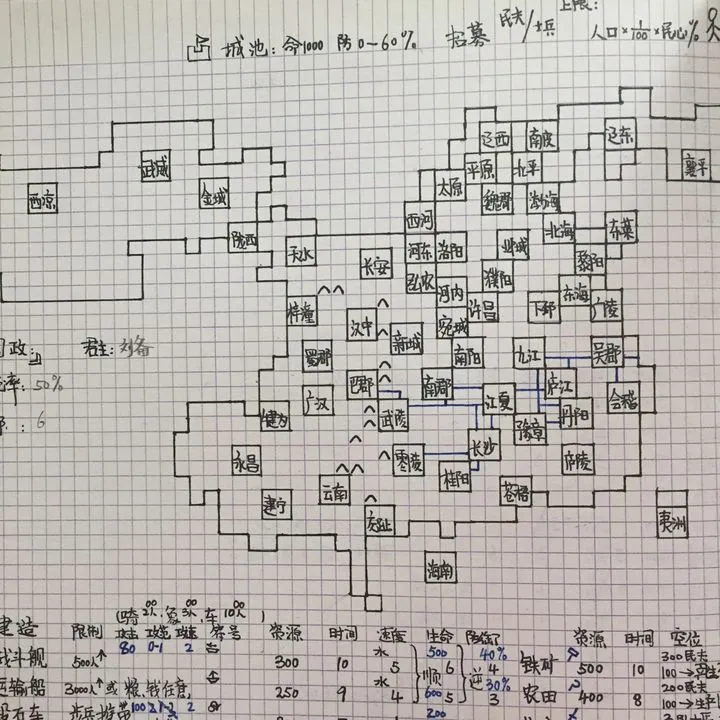 城池：命1000 防0~60%
招募 民夫/士兵
上限：
人口×1/100×民心%
辽西 南皮 辽东
武威 平原 北平 襄平
西凉 金城 太原 魏郡 渤海
西河 北海 东莱
陇西 天水 河东 洛阳 邺城
长安 黎阳
弘农 河内 濮阳 东海
梓潼 许昌 下邳 广陵
汉中 新城 宛城
君主：刘备
蜀郡 南阳 九江 吴郡
率：50%
巴郡 南郡 庐江
广汉 江夏 会稽
：6
犍为 武陵 豫章 丹阳
永昌 零陵 长沙
云南 桂阳 苍梧
建宁 交趾 夷洲
海南
建造 限制 (骑2人，象3人，车10人)
符号 资源 时间 速度 生命 防御 资源 时间 空位
80 0-1 2
战斗舰 500人↑ 300 10 水 5 500 6 40% 4 铁矿 500 10 300民夫
顺 逆
运输船 3000人↑或粮、钱任意 250 9 水 4 600 5 30% 3 农田 400 8 200民夫
投石车 100 2 200